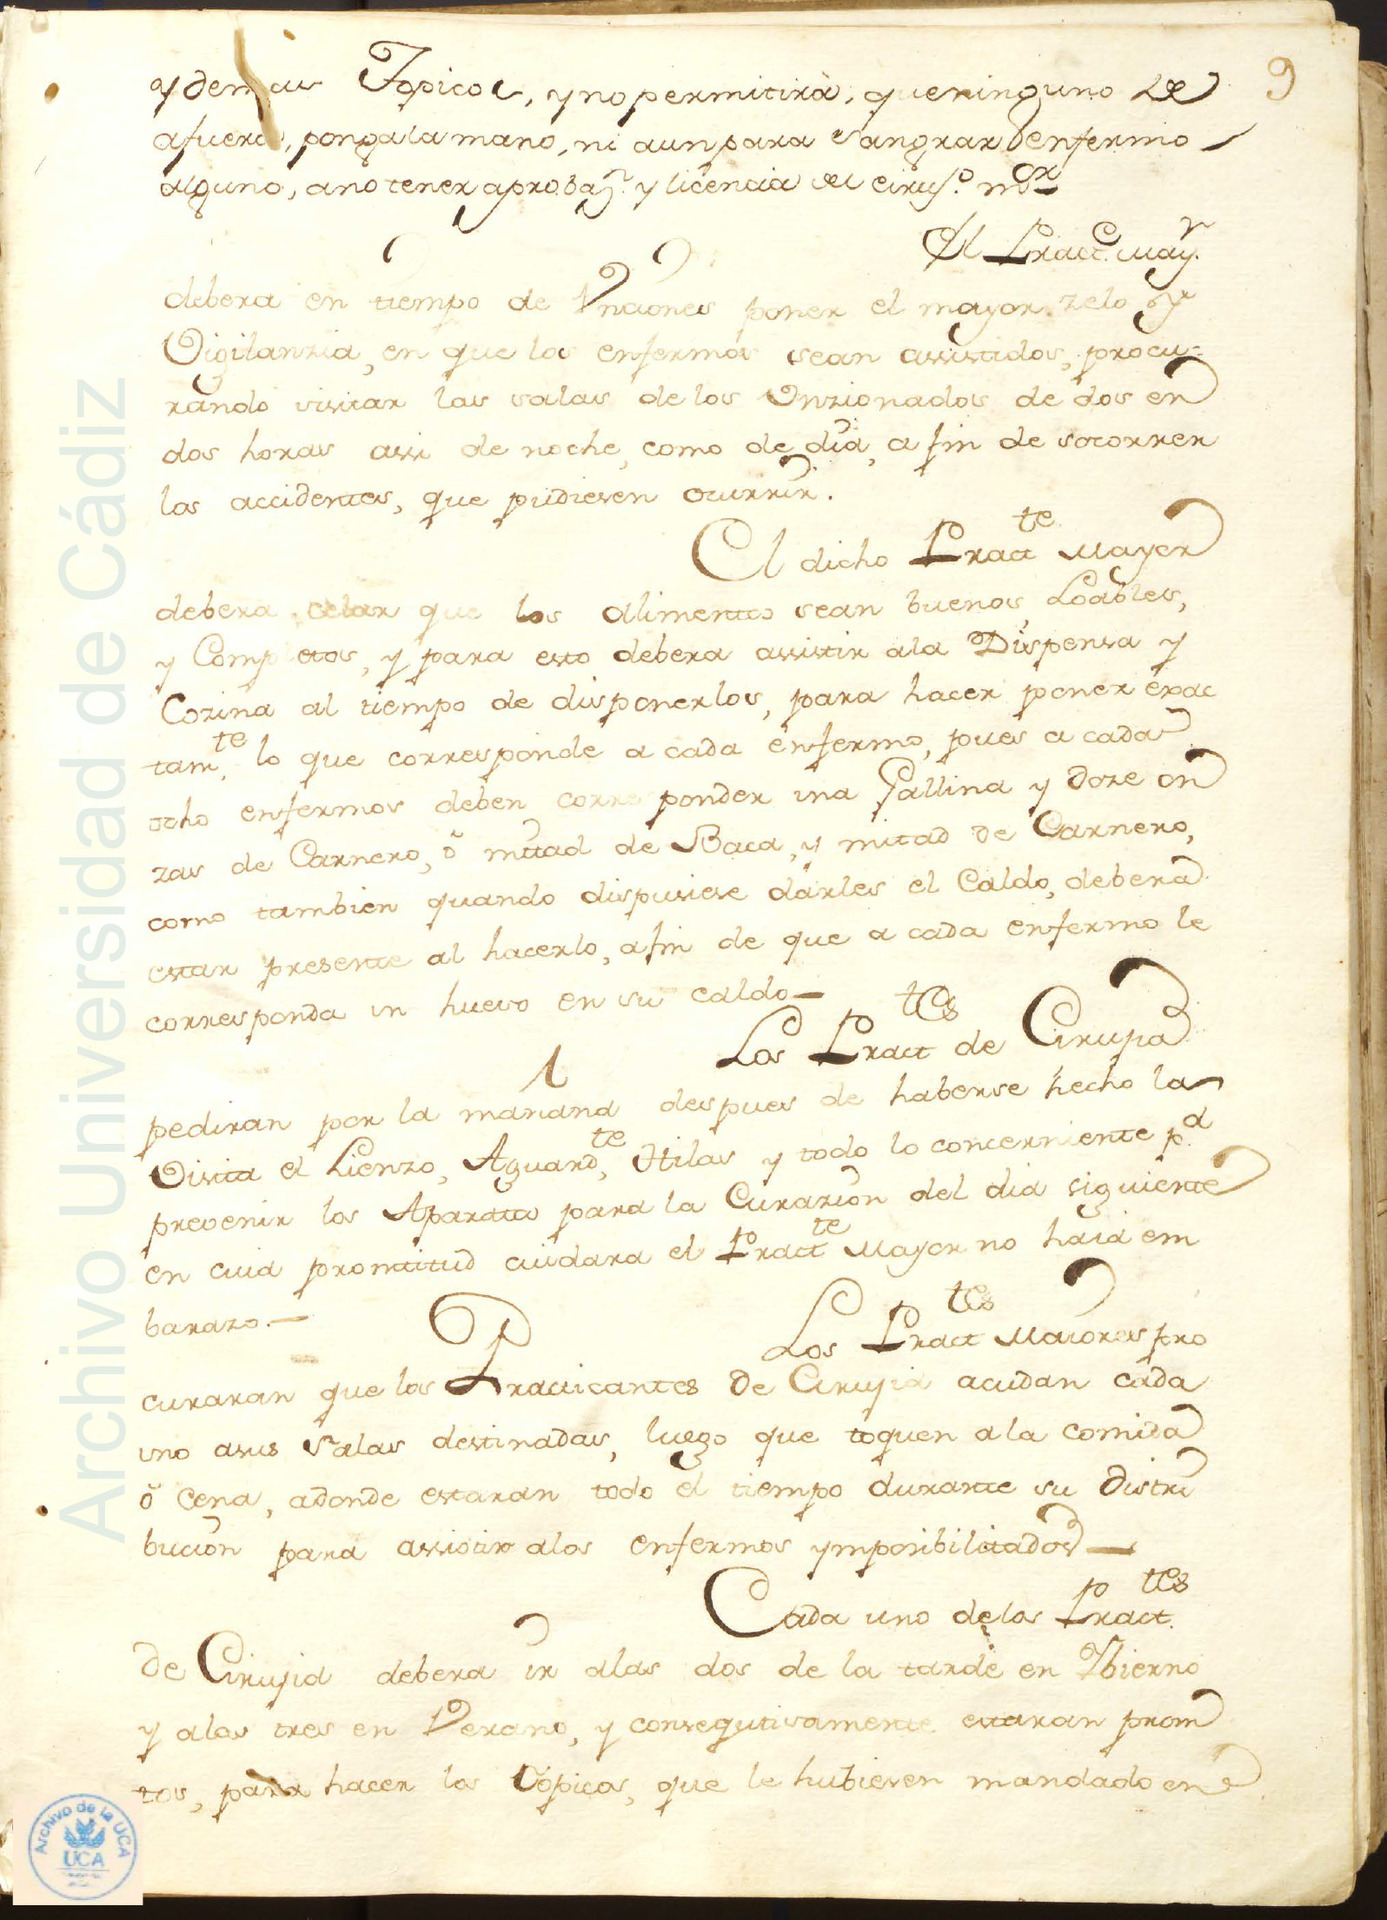 9
y demas Topicos, y no permitirà, que ninguno de
afuera, ponga la mano, ni aun para sangrar enfermo
alguno, a no tener aprobaz.n y licencia del ciruj.o m.or
El Pract.e May.r
debera en tiempo de Vnciones poner el mayor zelo y
Vigilanzia, en que los enfermos sean assistidos, procu-
rando visitar las salas de los Vnzionados de dos en
dos horas assi de noche, como de dia, a fin de socorrer
los accidentes, que pudiesen ocurrir.
El dicho Pract.te Mayor
debera celar que los alimentos sean buenos, Loables,
y Completos, y para esto debera assistir ala Dispensa y
Cozina al tiempo de disponerlos, para hacer poner exac
tam.te lo que corresponde a cada enfermo, pues a cada
ocho enfermos deben corresponder una Gallina y doze on
zas de Carnero, ô mitad de Baca, y mitad de Carnero,
como tambien quando dispusiese darles el Caldo, debera
estar presente al hacerlo, afin de que a cada enfermo le
corresponda un huevo en su caldo—
Los Pract.tes de Cirujia
pediran por la mañana despues de haberse hecho la
Visita el Lienzo, Aguard.te, Hilas y todo lo concerniente p.a
prevenir los Aparatos para la Curazion del dia siguiente
en cuia promtitud cuidara el Pract.te Mayor no haia em
barazo.—
Los Pract.tes Maiores pro
curaran que los Practicantes de Cirujia acudan cada
uno asus Salas destinadas, luego que toquen ala comida
ô cena, adonde estaran todo el tiempo durante su distri
bucion para assistir alos enfermos ymposibilitados—
Cada uno delos Pract.tes
de Cirujia debera ir alas dos de la tarde en Ybierno
y alas tres en Verano, y consequtivamente estaran prom
tos, para hacer los Topicos, que le hubiesen mandado en
Archivo Universidad de Cádiz
Archivo de la UCA
UCA